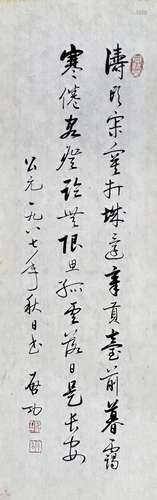 濤頭寂寞打城還章貢臺前暮靄
寒倦客登臨無限思孤雲落日是長安
公元一九八七年秋日書 啟功